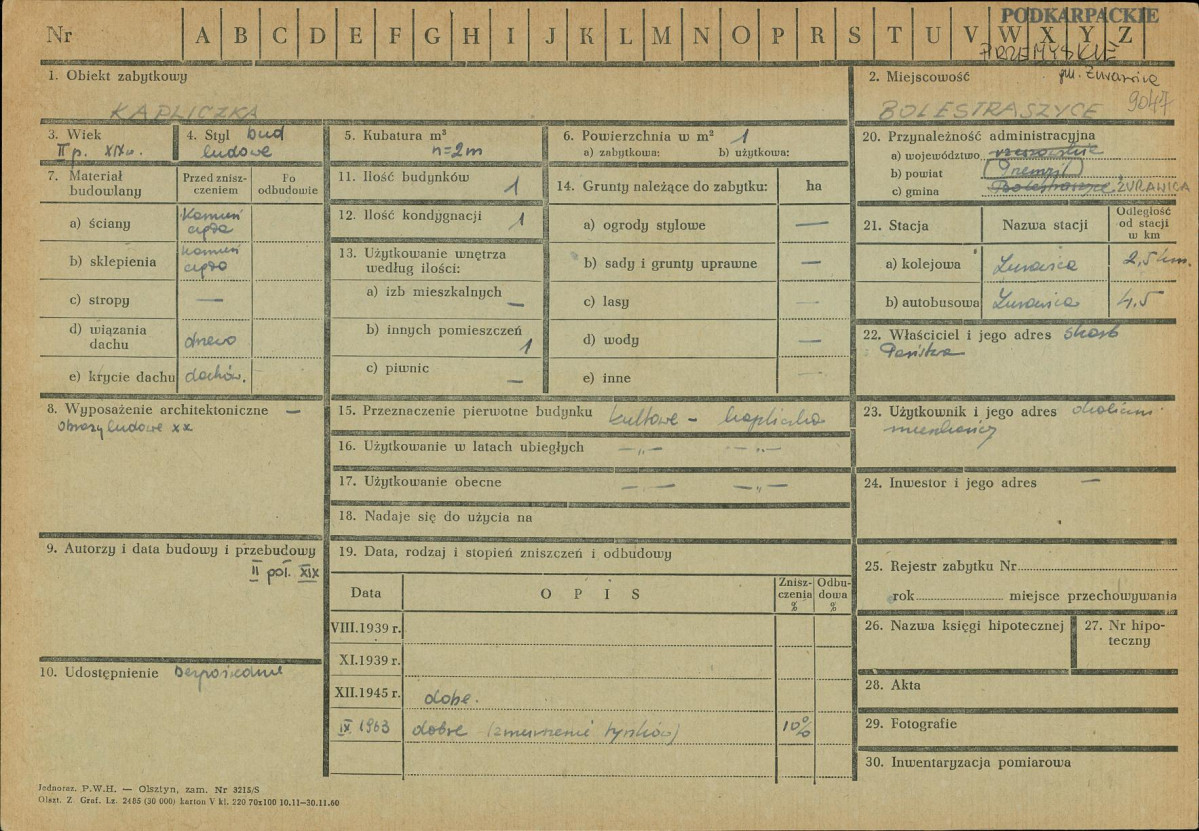 PODKARPACKIE
Nr A B C D E F G H I J K L M N O P R S T U V W X Y Z
PRZEMYSKIE
gm. Żurawica
1. Obiekt zabytkowy
KAPLICZKA
2. Miejscowość
BOLESTRASZYCE 9047
3. Wiek
II p. XIX w.
4. Styl bud
ludowe
5. Kubatura m³
n=2m
6. Powierzchnia w m² 1
a) zabytkowa: b) użytkowa:
7. Materiał budowlany
Przed zniszczeniem
Po odbudowie
a) ściany
kamień
cegła
b) sklepienia
kamień
cegła
c) stropy —
d) wiązania dachu drewo
e) krycie dachu dachów.
8. Wyposażenie architektoniczne —
obrazy ludowe xx
9. Autorzy i data budowy i przebudowy
II poł. XIX
10. Udostępnienie bezpośednie
11. Ilość budynków 1
12. Ilość kondygnacji 1
13. Użytkowanie wnętrza według ilości:
a) izb mieszkalnych —
b) innych pomieszczeń 1
c) piwnic —
14. Grunty należące do zabytku: ha
a) ogrody stylowe —
b) sady i grunty uprawne —
c) lasy —
d) wody —
e) inne —
15. Przeznaczenie pierwotne budynku kultowe - kapliczka
16. Użytkowanie w latach ubiegłych —„— —„—
17. Użytkowanie obecne —„— —„—
18. Nadaje się do użycia na
19. Data, rodzaj i stopień zniszczeń i odbudowy
Data OPIS Zniszczenia % Odbudowa %
VIII.1939 r.
XI.1939 r.
XII.1945 r. dobre.
IX 1963 dobre (zmurszenie tynków) 10%
20. Przynależność administracyjna
a) województwo rzeszowskie
b) powiat Przemyśl
c) gmina Bolestraszyce ŻURAWICA
21. Stacja Nazwa stacji Odległość od stacji w km
a) kolejowa Żurawica 2,5 km.
b) autobusowa Żurawica 4,5
22. Właściciel i jego adres Skarb
Państwa
23. Użytkownik i jego adres okoliczni
mieszkańcy
24. Inwestor i jego adres —
25. Rejestr zabytku Nr
rok miejsce przechowywania
26. Nazwa księgi hipotecznej
27. Nr hipoteczny
28. Akta
29. Fotografie
30. Inwentaryzacja pomiarowa
Jednoraz. P.W.H. — Olsztyn, zam. Nr 3215/S
Olszt. Z. Graf. Lz. 2485 (30 000) karton V kl. 220 70x100 10.11—30.11.60